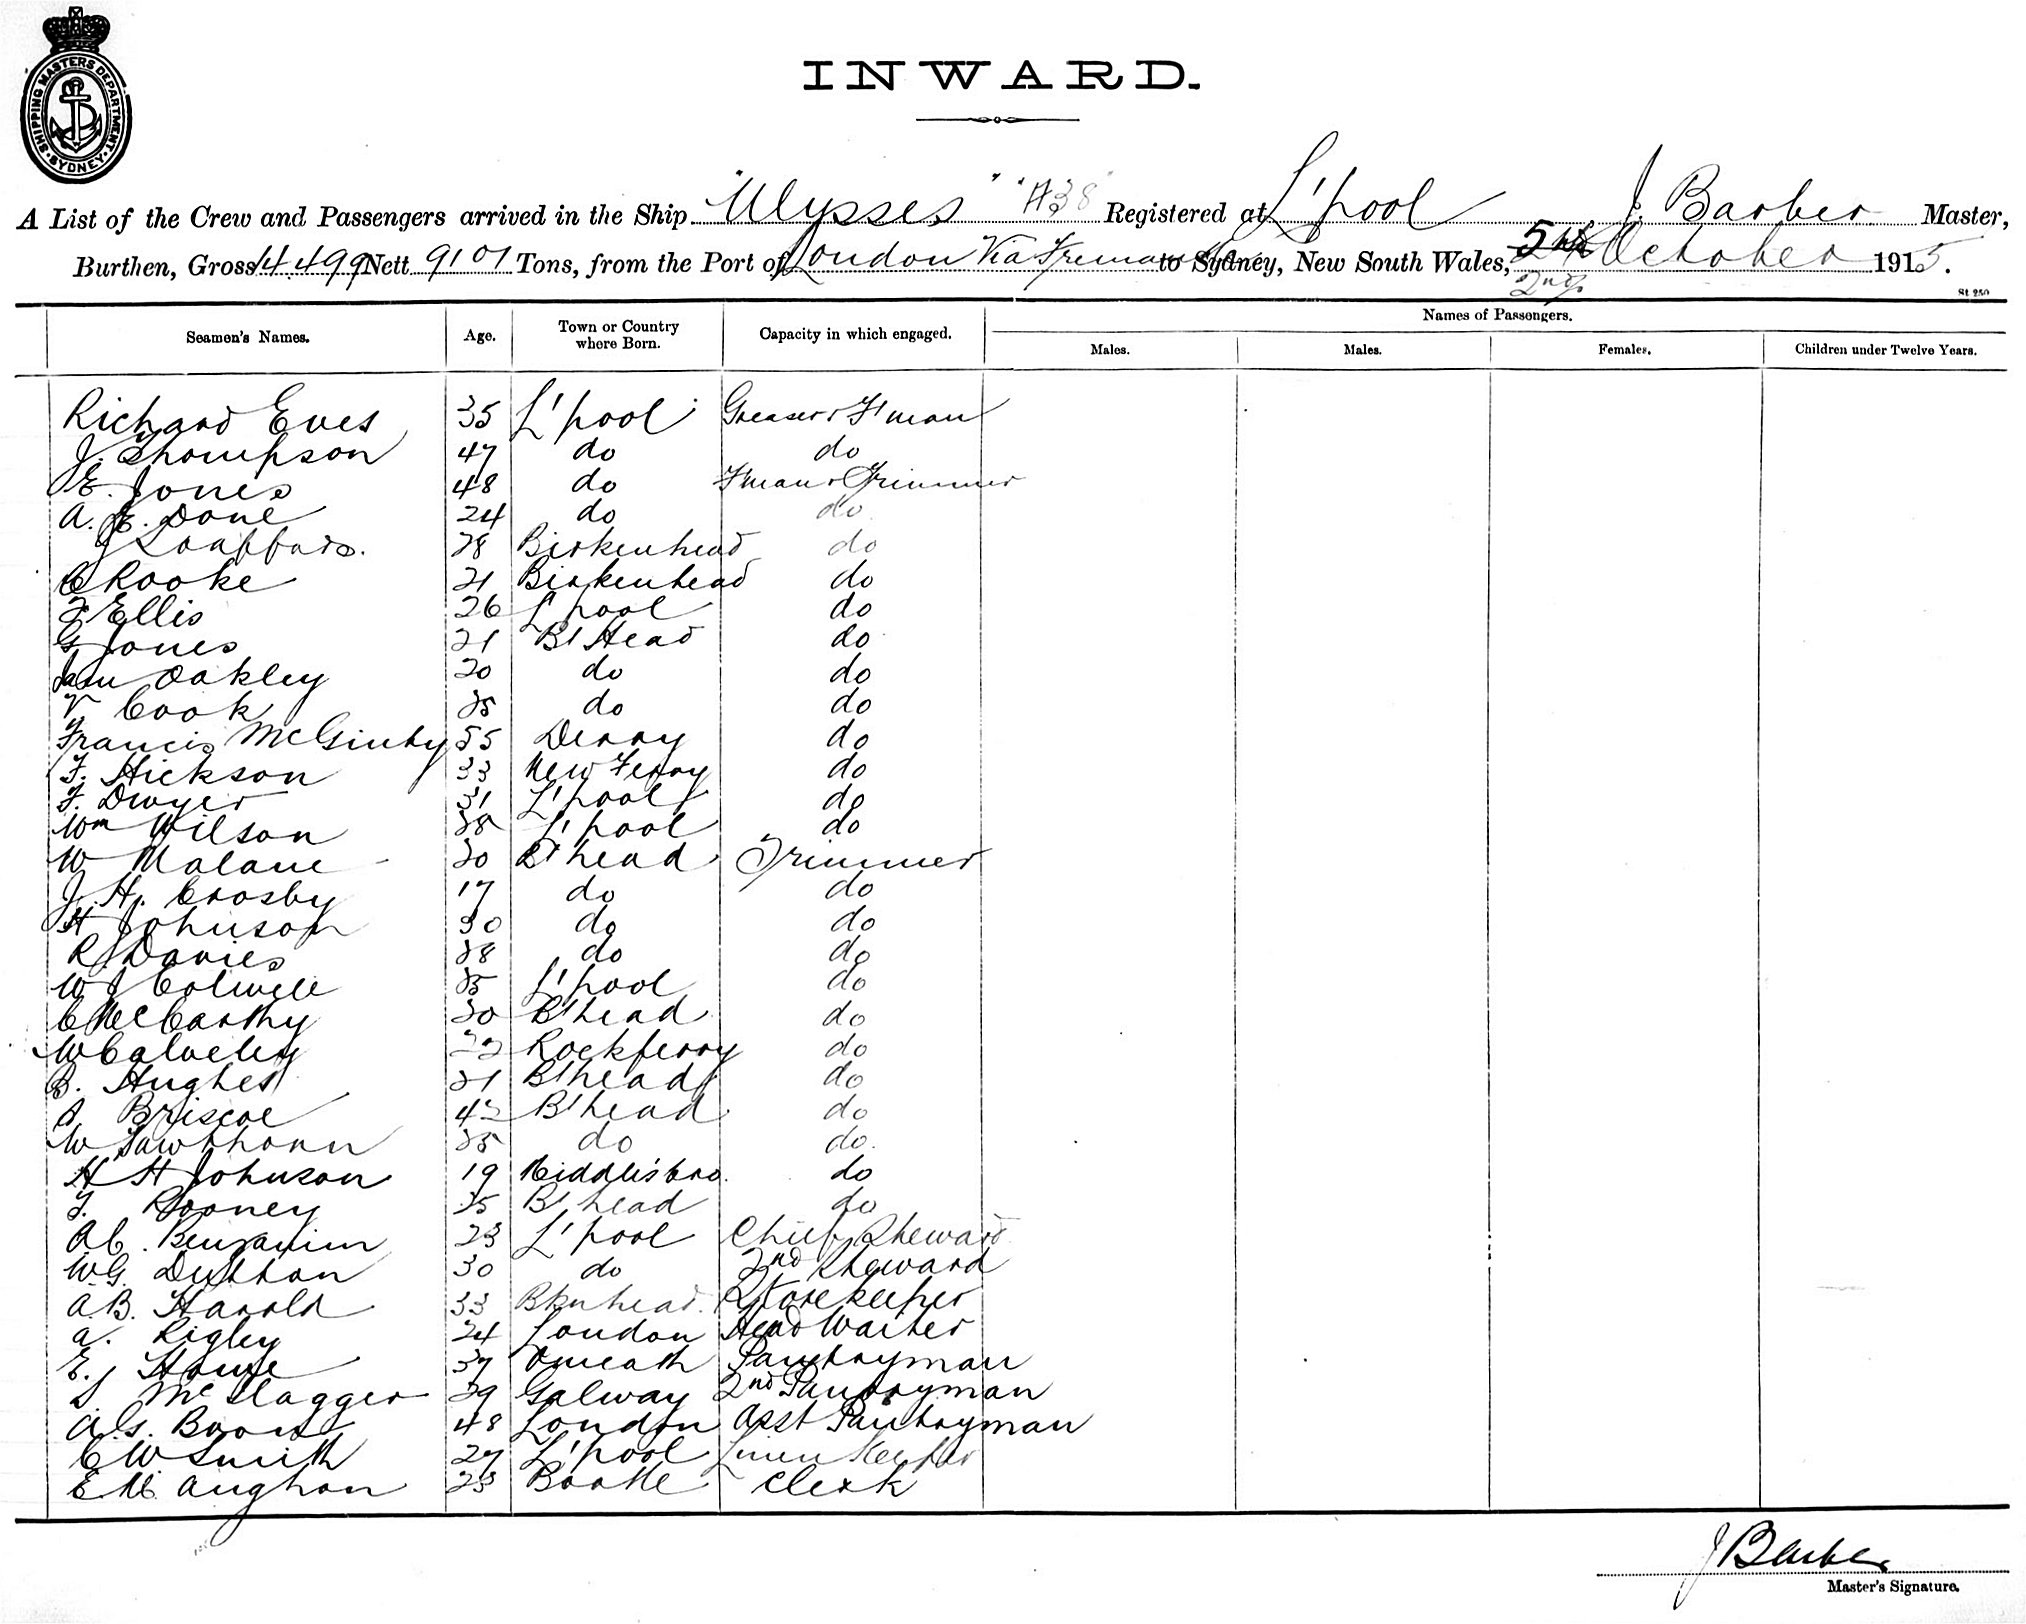 SHIPPING MASTERS DEPARTMENT. SYDNEY
INWARD.
A List of the Crew and Passengers arrived in the Ship "Ulysses" "A38" Registered at L'pool J. Barber Master,
Burthen, Gross 14499 Nett 9101 Tons, from the Port of London Via to Sydney, New South Wales, October 1915.
2nd
St 250
Seamen's Names. Age. Town or Country where Born. Capacity in which engaged. Names of Passengers.
Males. Males. Females. Children under Twelve Years.
Richard Eves 35 L'pool Greaser & F'man
J. Thompson 47 do do
E. Jones 48 do F'man & Trimmer
A. E. Done 24 do do
28 Birkenhead do
C Rooke 21 Birkenhead do
F Ellis 26 L'pool do
G Jones 21 B'Head do
Oakley 20 do do
Cook 25 do do
Francis McGinty 55 Derry do
F. Hickson 33 New Ferry do
F. Dwyer 31 L'pool do
Wm Wilson 38 L'pool do
W Malane 20 B'head Trimmer
J. H. Crosby 17 do do
H Johnson 30 do do
R J Davies 28 do do
W J Colwell 25 L'pool do
C McCarthy 20 B'head do
W Calveley 22 Rockferry do
B. Hughes 21 B'head do
Briscoe 42 B'head do
W Hawthorn 25 do do
H H Johnson 19 Middlesbro. do
T. Rooney 35 B'head do
A C. Benjamin 23 L'pool Chief Steward
W.G. Dutton 30 do 2nd Steward
A.B. Harold 33 Bknhead. Storekeeper
A. Rigley 24 London Head Waiter
E. Howe 37 Omeath Pantryman
29 Galway 2nd Pantryman
A.S. 48 London Asst Pantryman
C W Smith 27 L'pool Linen Keeper
E Mc Aughton 23 Bootle Clerk
J Barber
Master's Signature.